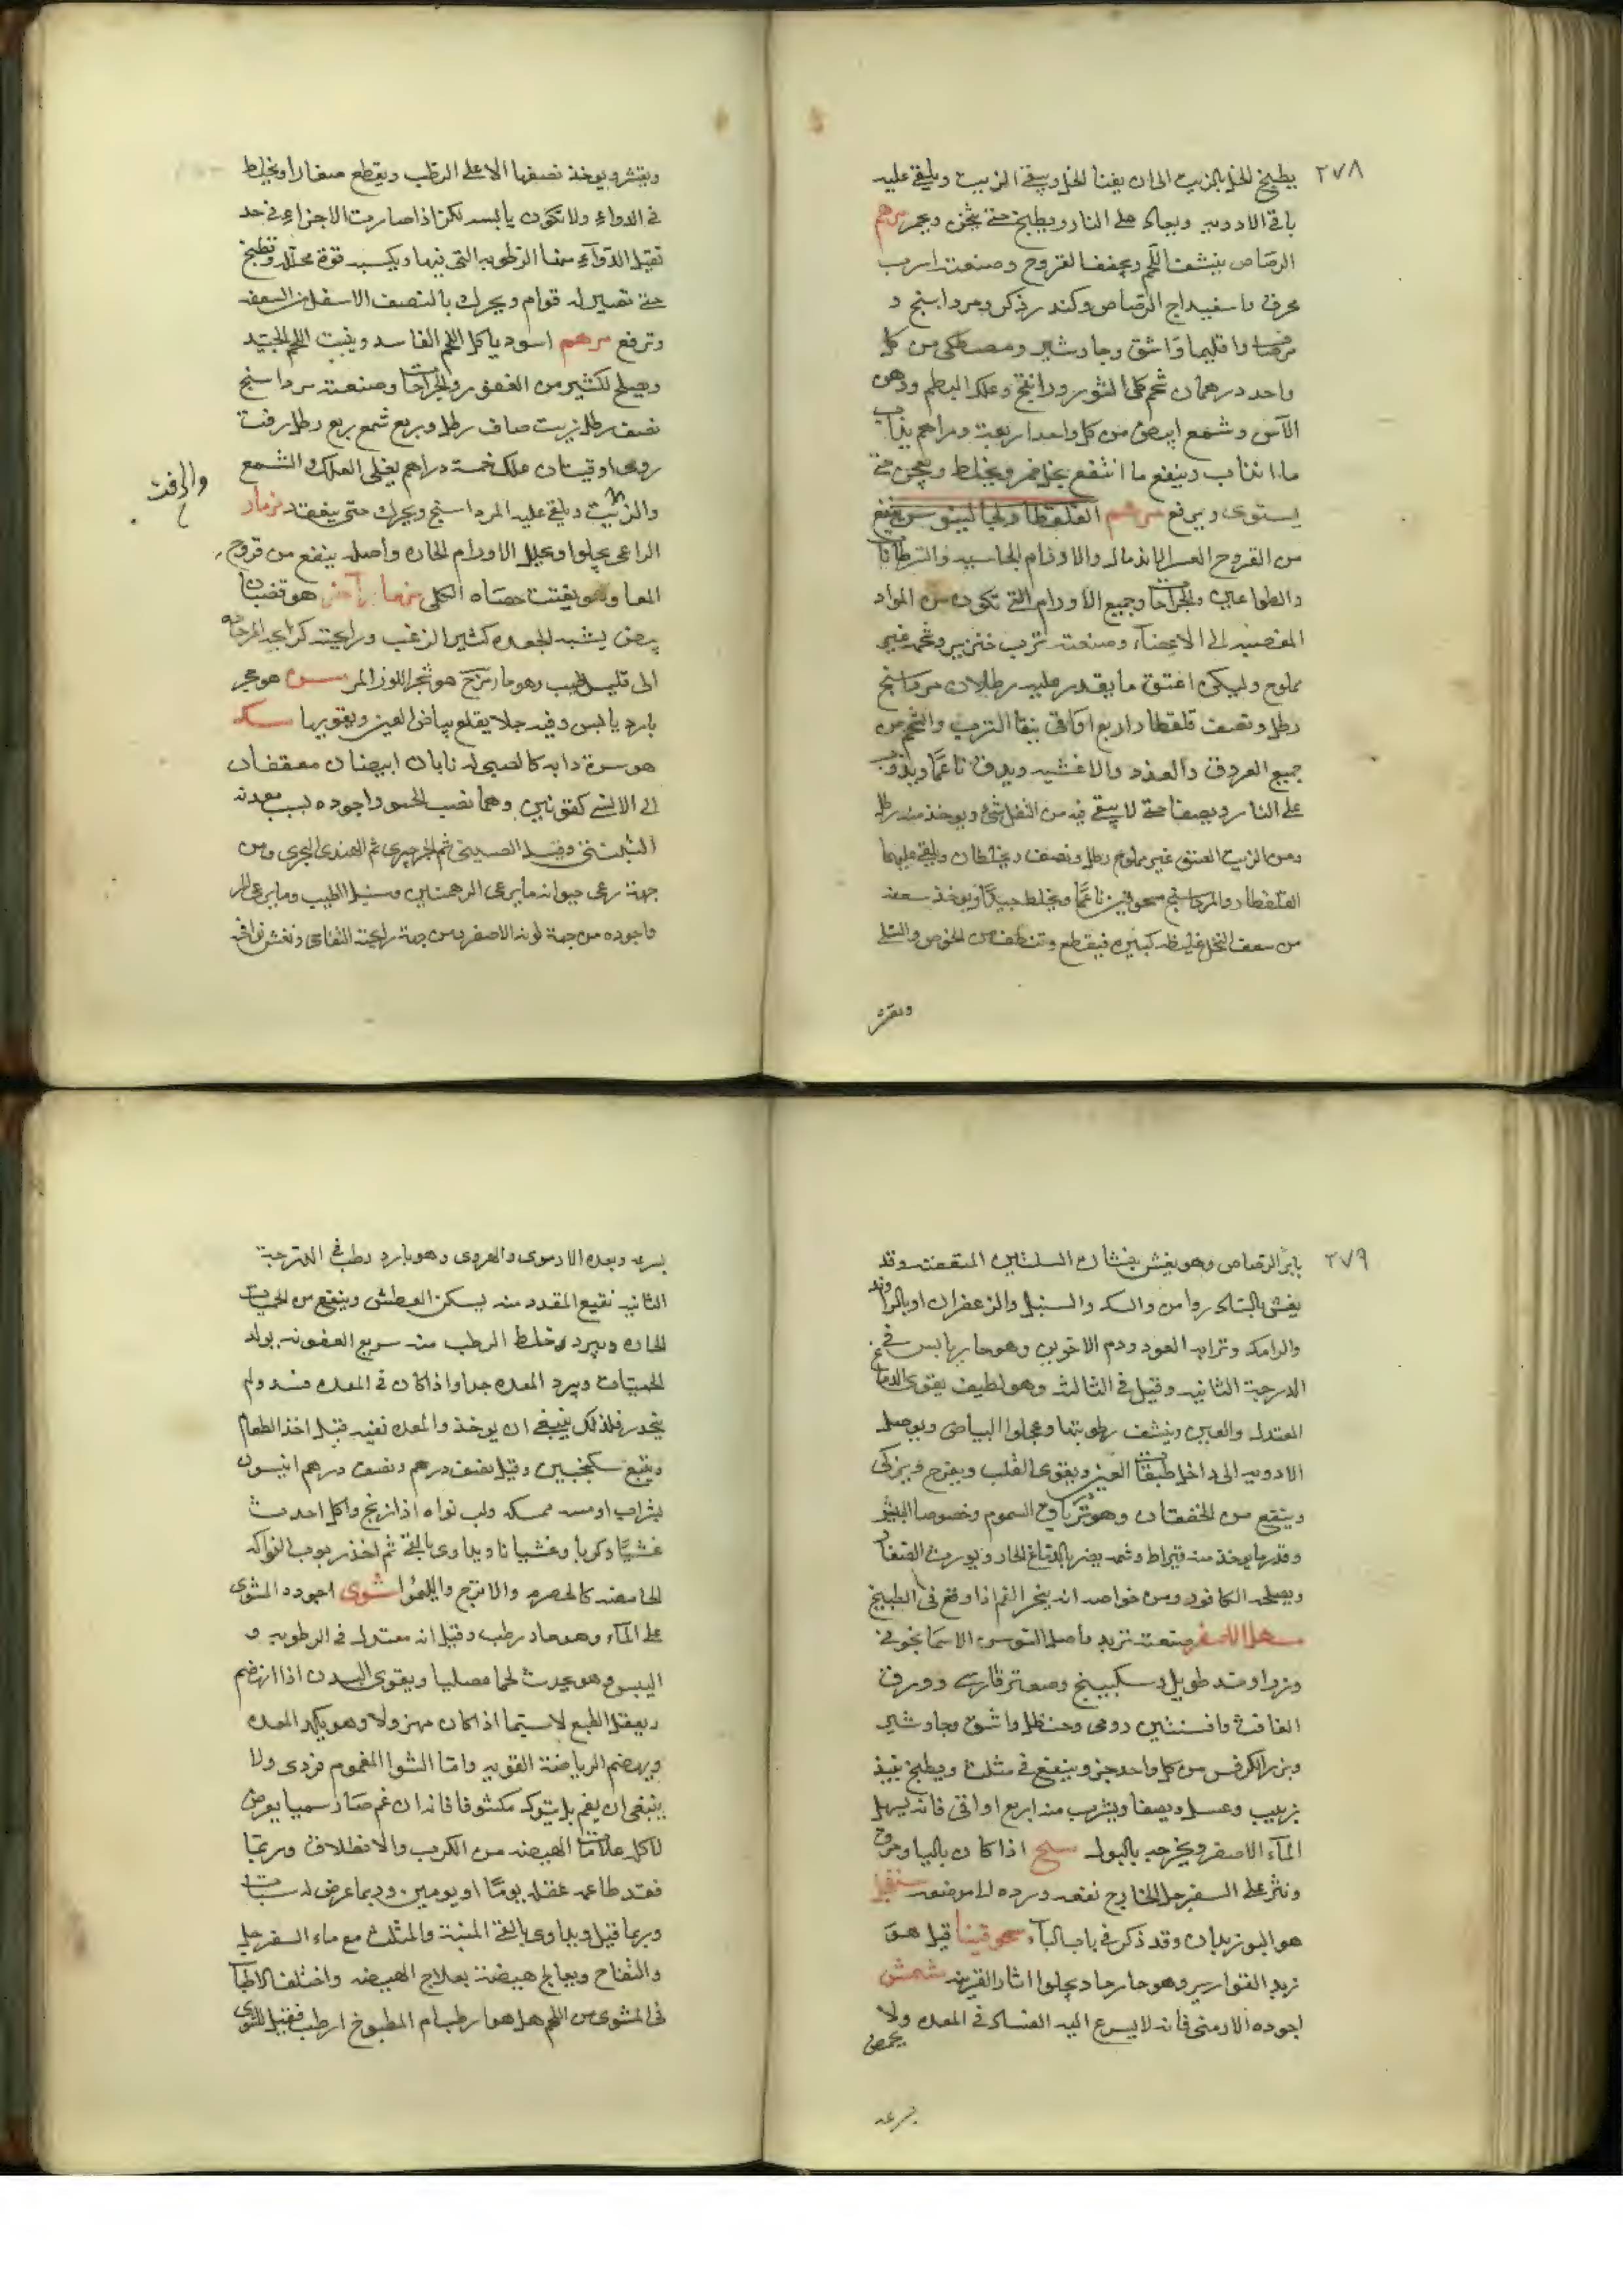 ٢٧٨
يطبخ الخل بالزيت الى ان يفنا الخل ويبقى الزيت ويلقى عليه
باقى الادويه ويعاد على النار ويطبخ حتى يثخن مرهم
الرصاص ينشف اللحم ويجفف القروح وصنعته اسرب
محرق باسفيداج الرصاص وكندر ذكر ومرداسنج و
واقليميا واشق وجاوشير ومصطكى من كل
واحد درهمان شحم كلى الثور وراتينج وعلك البطم ودهن
الآس وشمع ابيض من كل واحد اربعة دراهم يذاب
ما انذاب وينقع ما انتقع بخل خمر ويخلط ويعجن حتى
يستوى ويرفع مرهم القلقطار لجالينوس ينفع
من القروح العسرة الاندمال والاورام الجاسيه والسرطانات
والطواعين والجراحات وجميع الاورام التى تكون من المواد
المنصبه الى الاعضاء وصنعته ثرب خنزير وشحمه غير
مملوح وليكن اعتق ما يقدر عليه رطلان مرداسنج
رطل ونصف قلقطار اربع اواقى ينقا الثرب والشحم من
جميع العروق والغدد والاغشيه ويدق ناعما ويذوب
على النار ويصفا حتى لا يبقى فيه من الثفل شئ ويوخذ منه رطل
ومن الزيت العتق غير مملوح رطل ونصف ويخلطان ويلقى عليهما
القلقطار والمرداسنج مسحوقين ناعما ويخلط جيدا ويوخذ سعفه
من سعف النخل غليظه كبيره فيقطع وتنظف من الخوص والسلى
ويقشر
ويقشر ويوخذ نصفها الاعلى الرطب ويقطع صغارا ويخلط
فى الدواء ولا تكون يابسه لكن اذا صارت الاجزاء فى حد
تقبل الدواء منها الرطوبه التى فيها ويكسبه قوة محلله وتطبخ
حتى تصير له قوام ويحرك بالنصف الاسفل من السعفه
وترفع مرهم اسود ياكل اللحم الفاسد وينبت اللحم الجيد
ويصلح لكثير من العقور والجراحات وصنعته مرداسنج
نصف رطل زيت صاف رطل وربع شمع ربع رطل زفت
رومى اوقيتان علك خمسة دراهم يغلى العلك والشمع
والزفت
والزيت ويلقى عليه المرداسنج ويحرك حتى ينعقد مزمار
الراعى يجلوا ويحلل الاورام الحاره واصله ينفع من قروح
المعا وهو يفتت حصاه الكلى هو قضبان
بيض يشبه الجعده كثير الزغب ورايحته كرايحه
الى قليل طيب وهو حار مزج هو شجر اللوز المر هو حجر
بارد يابس وفيه جلا يقلع بياض العين ويقويها مسك
هو سرة دابه كالضبى له نابان ابيضان معقفان
الى الانسى كقرنين واجوده بسبب معدنه
التبتى وقيل الصينى ثم الجرجيرى ثم الهندى البحرى ومن
جهة رعى حيوانه ما يرعى البهمنين وسنبل الطيب وما يرعى المر
واجوده من جهة لونه الاصفر ومن جهة رايحته التفاحى ونغش
٢٧٩
الرصاص وهو يغش وقد
يغش والسك والسنبل والزعفران او بالراوند
والرامك وتراب العود ودم الاخوين وهو حار يابس فى
الدرجة الثانيه وقيل فى الثالثه وهو لطيف يقوى الدماغ
المعتدل والعين وينشف رطوبتها ويجلوا البياض ويوصل
الادويه الى داخل طبقات العين ويقوى القلب ويفرح ويزكى
وينفع من الخفقان وهو ترياق السموم وخصوصا البيش
وقدر ما يوخذ منه قيراط وشمه يضر بالدماغ الحار ويورث الصفار
ويصلحه الكافور ومن خواصه انه يبخر الفم اذا وقع فى الطبيخ
مسهل الاصفر صنعته تربد واصل السوسن الاسمانجونى
وزراوند طويل وسكبينج وصعتر فارسى وورق
الغافت وافسنتين رومى وحنظل واشق وجاوشير
وبزر الكرفس من كل واحد جزو ينقع فى مثلث ويطبخ بنبيذ
زبيب وعسل ويصفا ويشرب منه اربع اواقى فانه يسهل
الماء الاصفر ويخرجه بالبول مسح اذا كان باليا وحرق
ونثر على السفرجل الخارج نفعه ورده الى موضعه مستعجل
هو البوزيدان وقد ذكر فى باب الباء مسحوقينا قيل هو
زبد القوارير وهو حار حاد يجلوا اثار القرنيه مشمش
اجوده الارمنى فانه لا يسرع اليه الفساد فى المعده ولا يحمض
بسرعه
بسرعه وبعده الادسوى والهروى وهو بارد رطب فى الدرجة
الثانيه نقيع المقدد منه يسكن العطش وينفع من الحميات
الحاره ويبرد وخلط الرطب منه سريع العفونه يولد
الحميات ويبرد المعده جدا واذا كان فى المعده فسد ولم
ينحدر فلذلك ينبغى ان يوخذ والمعده نقيه قبل اخذ الطعام
ويتبع سكنجبين وقيل نصف درهم ونصف درهم انيسون
بشراب او مسه ممسكه ولب نواه اذا زنخ واكل احدث
غشيا وكربا وغشيانا ويداوى بالقئ ثم اخذ ربوب الفواكه
الحامضه كالحصرم والاترج والليمو مشوى اجوده المشوى
على الماء وهو حار رطب وقيل انه معتدل فى الرطوبه و
اليبس وهو يحدث لحما فصليا ويقوى البدن اذا انهضم
ويعقل الطبع لاسيما اذا كان مهزولا وهو يكد المعده
ويهضم الرياضة القويه واما الشوا المغموم فردى ولا
ينبغى ان يغم بل يترك مكشوفا فانه ان غم صار سميا يعرض
لاكله علامات الهيضه من الكرب والانطلاق وربما
فقد طاعمه عقله يوما او يومين وربما عرض له سبات
وربما قتل ويداوى بالقئ المنبه والمثلث مع ماء السفرجل
والتفاح ويعالج هيضته بعلاج الهيضه واختلف الاطبا
فى المشوى من اللحم هل هو ارطب ام المطبوخ ارطب فقيل المشوى